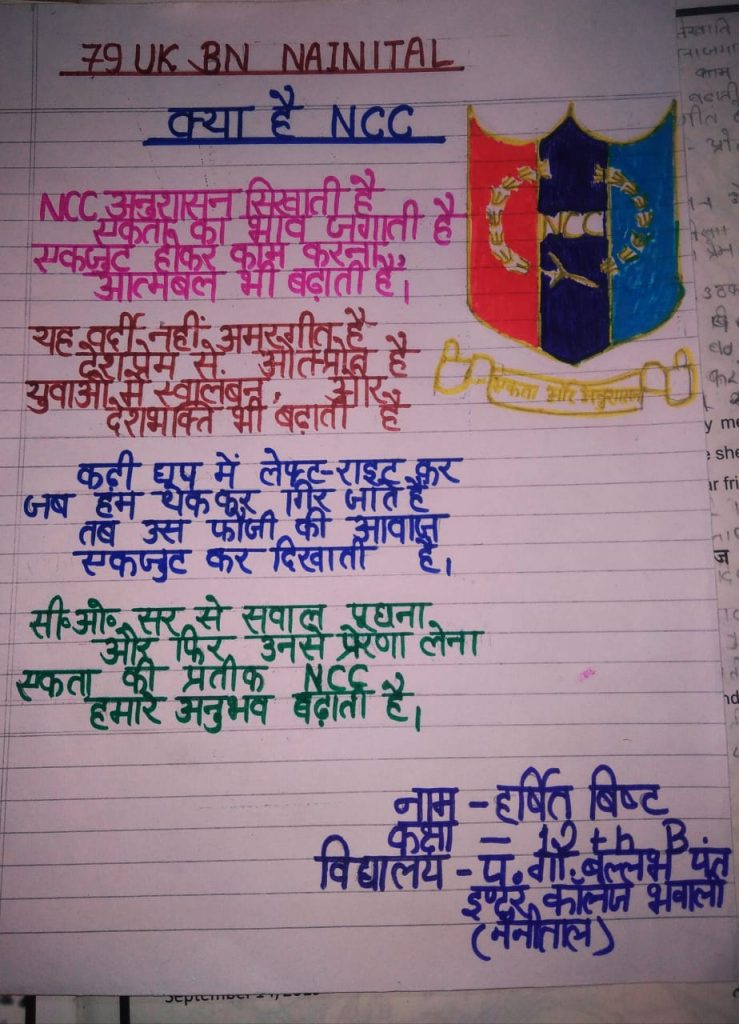 79 UK BN NAINITAL
क्या है NCC
NCC अनुशासन सिखाती है
एकता का भाव जगाती है
एकजुट होकर काम करना,
आत्मबल भी बढ़ाती है।
यह वर्दी नहीं अमरगीत है
देशप्रेम से ओतप्रोत है
युवाओं में स्वालंबन, और
देशभक्ति भी बढ़ाती है
कड़ी धूप में लेफ्ट-राइट कर
जब हम थककर गिर जाते हैं
तब उस फौजी की आवाज
एकजुट कर दिखाती है।
सी॰ओ॰ सर से सवाल पूछना
और फिर उनसे प्रेरणा लेना
एकता की प्रतीक NCC
हमारे अनुभव बढ़ाती है।
NCC
एकता और अनुशासन
नाम - हर्षित बिष्ट
कक्षा - 12th B
विद्यालय - पं. गो. बल्लभ पंत
इण्टर कॉलेज भवाली
(नैनीताल)